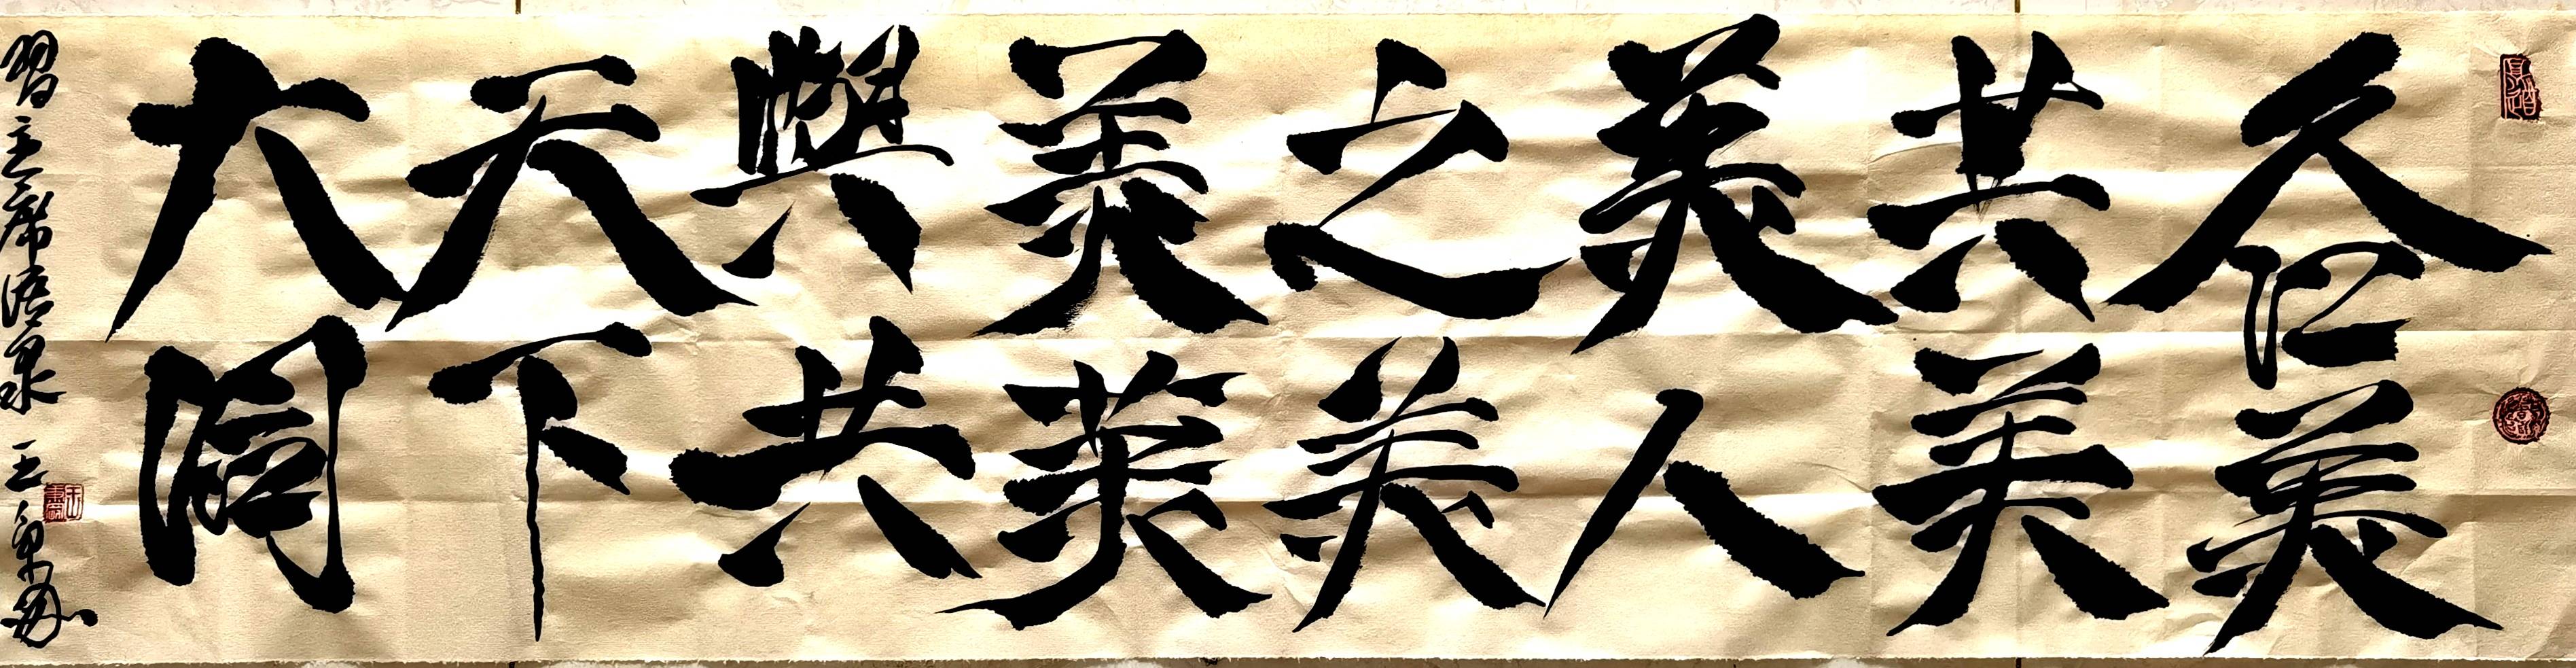 各美
其美
美人
之美
美美
與共
天下
大同
習主席語录 王